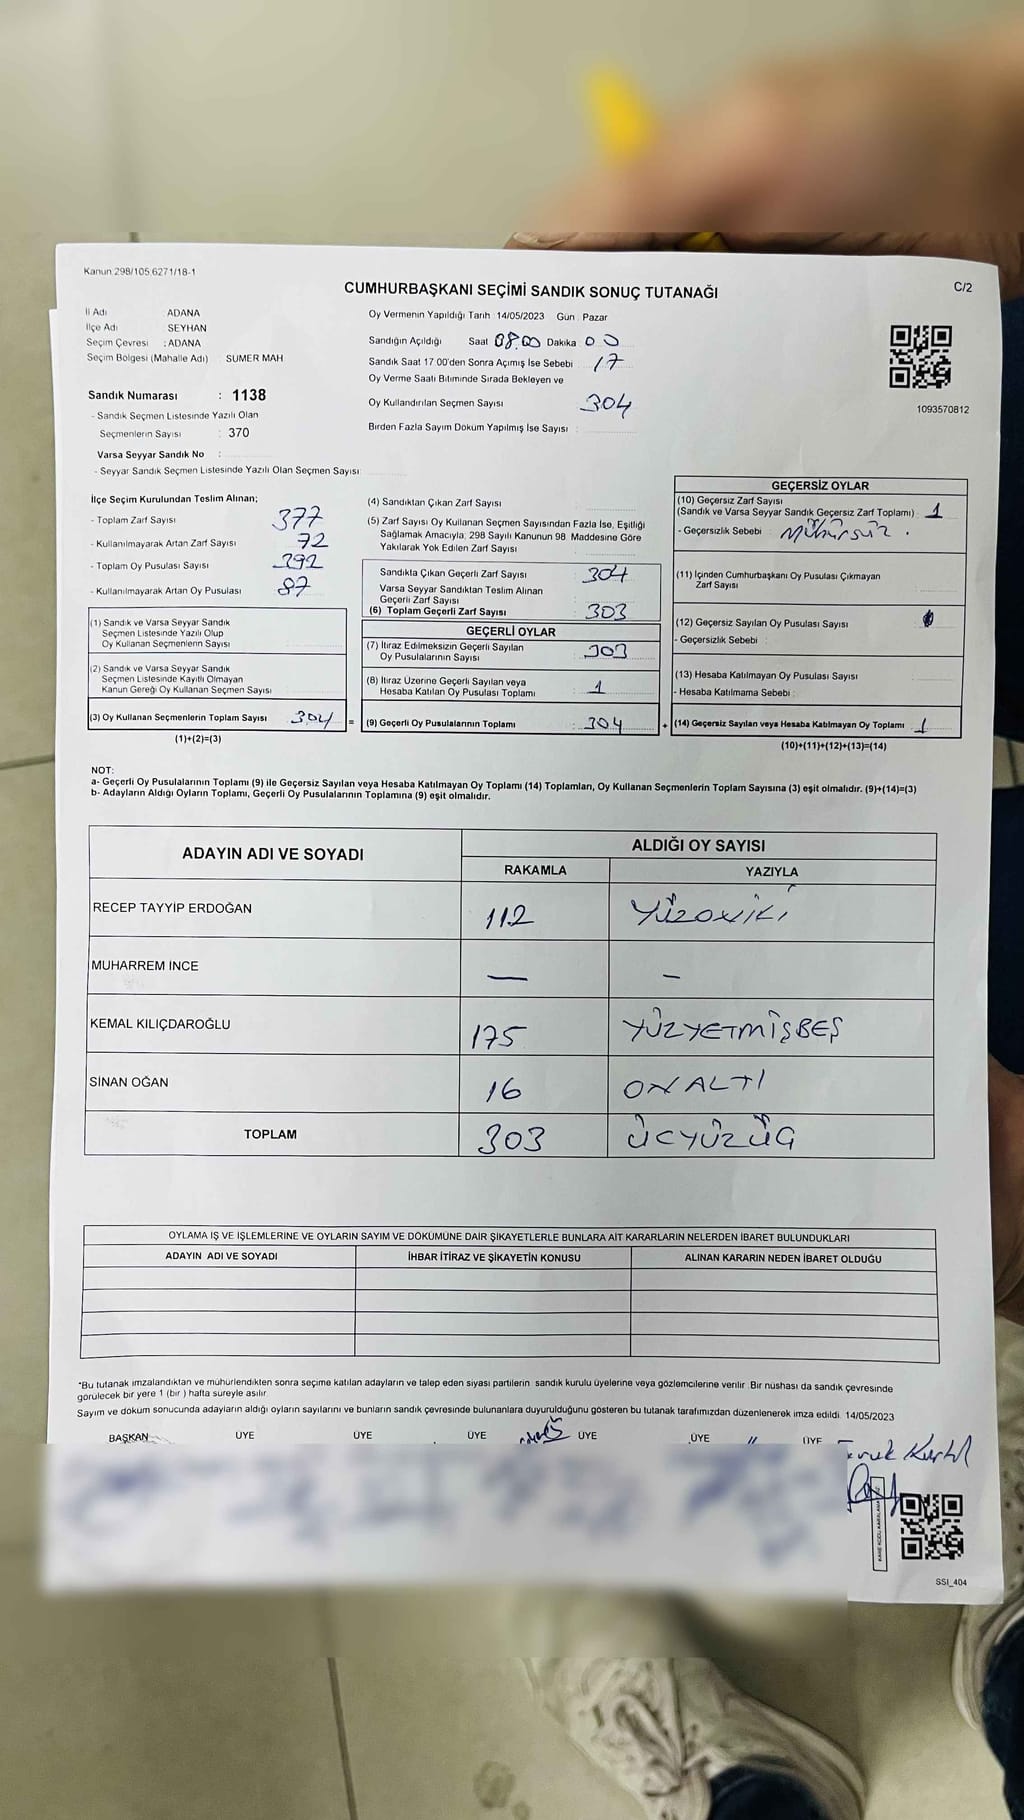 Kanun 298/105 6271/18-1
CUMHURBAŞKANI SEÇİMİ SANDIK SONUÇ TUTANAĞI
C/2
İl Adı : ADANA
İlçe Adı : SEYHAN
Seçim Çevresi : ADANA
Seçim Bölgesi (Mahalle Adı) : SUMER MAH
Sandık Numarası : 1138
- Sandık Seçmen Listesinde Yazılı Olan
Seçmenlerin Sayısı : 370
Varsa Seyyar Sandık No :
- Seyyar Sandık Seçmen Listesinde Yazılı Olan Seçmen Sayısı
Oy Vermenin Yapıldığı Tarih 14/05/2023 Gün Pazar
Sandığın Açıldığı Saat 08.00 Dakika 00
Sandık Saat 17 00'den Sonra Açımış İse Sebebi 17
Oy Verme Saati Bitiminde Sırada Bekleyen ve
Oy Kullandırılan Seçmen Sayısı 304
Birden Fazla Sayım Döküm Yapılmış İse Sayısı
1093570812
İlçe Seçim Kurulundan Teslim Alınan;
- Toplam Zarf Sayısı 377
- Kullanılmayarak Artan Zarf Sayısı 72
- Toplam Oy Pusulası Sayısı 392
- Kullanılmayarak Artan Oy Pusulası 87
(1) Sandık ve Varsa Seyyar Sandık
Seçmen Listesinde Yazılı Olup
Oy Kullanan Seçmenlerin Sayısı
(2) Sandık ve Varsa Seyyar Sandık
Seçmen Listesinde Kayıtlı Olmayan
Kanun Gereği Oy Kullanan Seçmen Sayısı
(3) Oy Kullanan Seçmenlerin Toplam Sayısı 304
(1)+(2)=(3)
(4) Sandıktan Çıkan Zarf Sayısı
(5) Zarf Sayısı Oy Kullanan Seçmen Sayısından Fazla İse, Eşitliği
Sağlamak Amacıyla; 298 Sayılı Kanunun 98. Maddesine Göre
Yakılarak Yok Edilen Zarf Sayısı
Sandıkta Çıkan Geçerli Zarf Sayısı 304
Varsa Seyyar Sandıktan Teslim Alınan
Geçerli Zarf Sayısı
(6) Toplam Geçerli Zarf Sayısı 303
GEÇERLİ OYLAR
(7) İtiraz Edilmeksizin Geçerli Sayılan
Oy Pusulalarının Sayısı 303
(8) İtiraz Üzerine Geçerli Sayılan veya
Hesaba Katılan Oy Pusulası Toplamı 1
= (9) Geçerli Oy Pusulalarının Toplamı 304
GEÇERSİZ OYLAR
(10) Geçersiz Zarf Sayısı
(Sandık ve Varsa Seyyar Sandık Geçersiz Zarf Toplamı) : 1
- Geçersizlik Sebebi : Mühürsüz.
(11) İçinden Cumhurbaşkanı Oy Pusulası Çıkmayan
Zarf Sayısı
(12) Geçersiz Sayılan Oy Pusulası Sayısı
- Geçersizlik Sebebi :
(13) Hesaba Katılmayan Oy Pusulası Sayısı
- Hesaba Katılmama Sebebi :
+ (14) Geçersiz Sayılan veya Hesaba Katılmayan Oy Toplamı 1
(10)+(11)+(12)+(13)=(14)
NOT:
a- Geçerli Oy Pusulalarının Toplamı (9) ile Geçersiz Sayılan veya Hesaba Katılmayan Oy Toplamı (14) Toplamları, Oy Kullanan Seçmenlerin Toplam Sayısına (3) eşit olmalıdır. (9)+(14)=(3)
b- Adayların Aldığı Oyların Toplamı, Geçerli Oy Pusulalarının Toplamına (9) eşit olmalıdır.
ADAYIN ADI VE SOYADI
ALDIĞI OY SAYISI
RAKAMLA YAZIYLA
RECEP TAYYİP ERDOĞAN 112 YÜZONİKİ
MUHARREM İNCE — –
KEMAL KILIÇDAROĞLU 175 YÜZYETMİŞBEŞ
SİNAN OĞAN 16 ONALTI
TOPLAM 303 ÜCYÜZÜÇ
OYLAMA İŞ VE İŞLEMLERİNE VE OYLARIN SAYIM VE DÖKÜMÜNE DAİR ŞİKAYETLERLE BUNLARA AİT KARARLARIN NELERDEN İBARET BULUNDUKLARI
ADAYIN ADI VE SOYADI İHBAR İTİRAZ VE ŞİKAYETİN KONUSU ALINAN KARARIN NEDEN İBARET OLDUĞU
*Bu tutanak imzalandıktan ve mühürlendikten sonra seçime katılan adayların ve talep eden siyasi partilerin sandık kurulu üyelerine veya gözlemcilerine verilir Bir nüshası da sandık çevresinde
görülecek bir yere 1 (bir ) hafta süreyle asılır
Sayım ve döküm sonucunda adayların aldığı oyların sayılarını ve bunların sandık çevresinde bulunanlara duyurulduğunu gösteren bu tutanak tarafımızdan düzenlenerek imza edildi. 14/05/2023
BAŞKAN ÜYE ÜYE ÜYE ÜYE ÜYE ÜYE
SSI_404